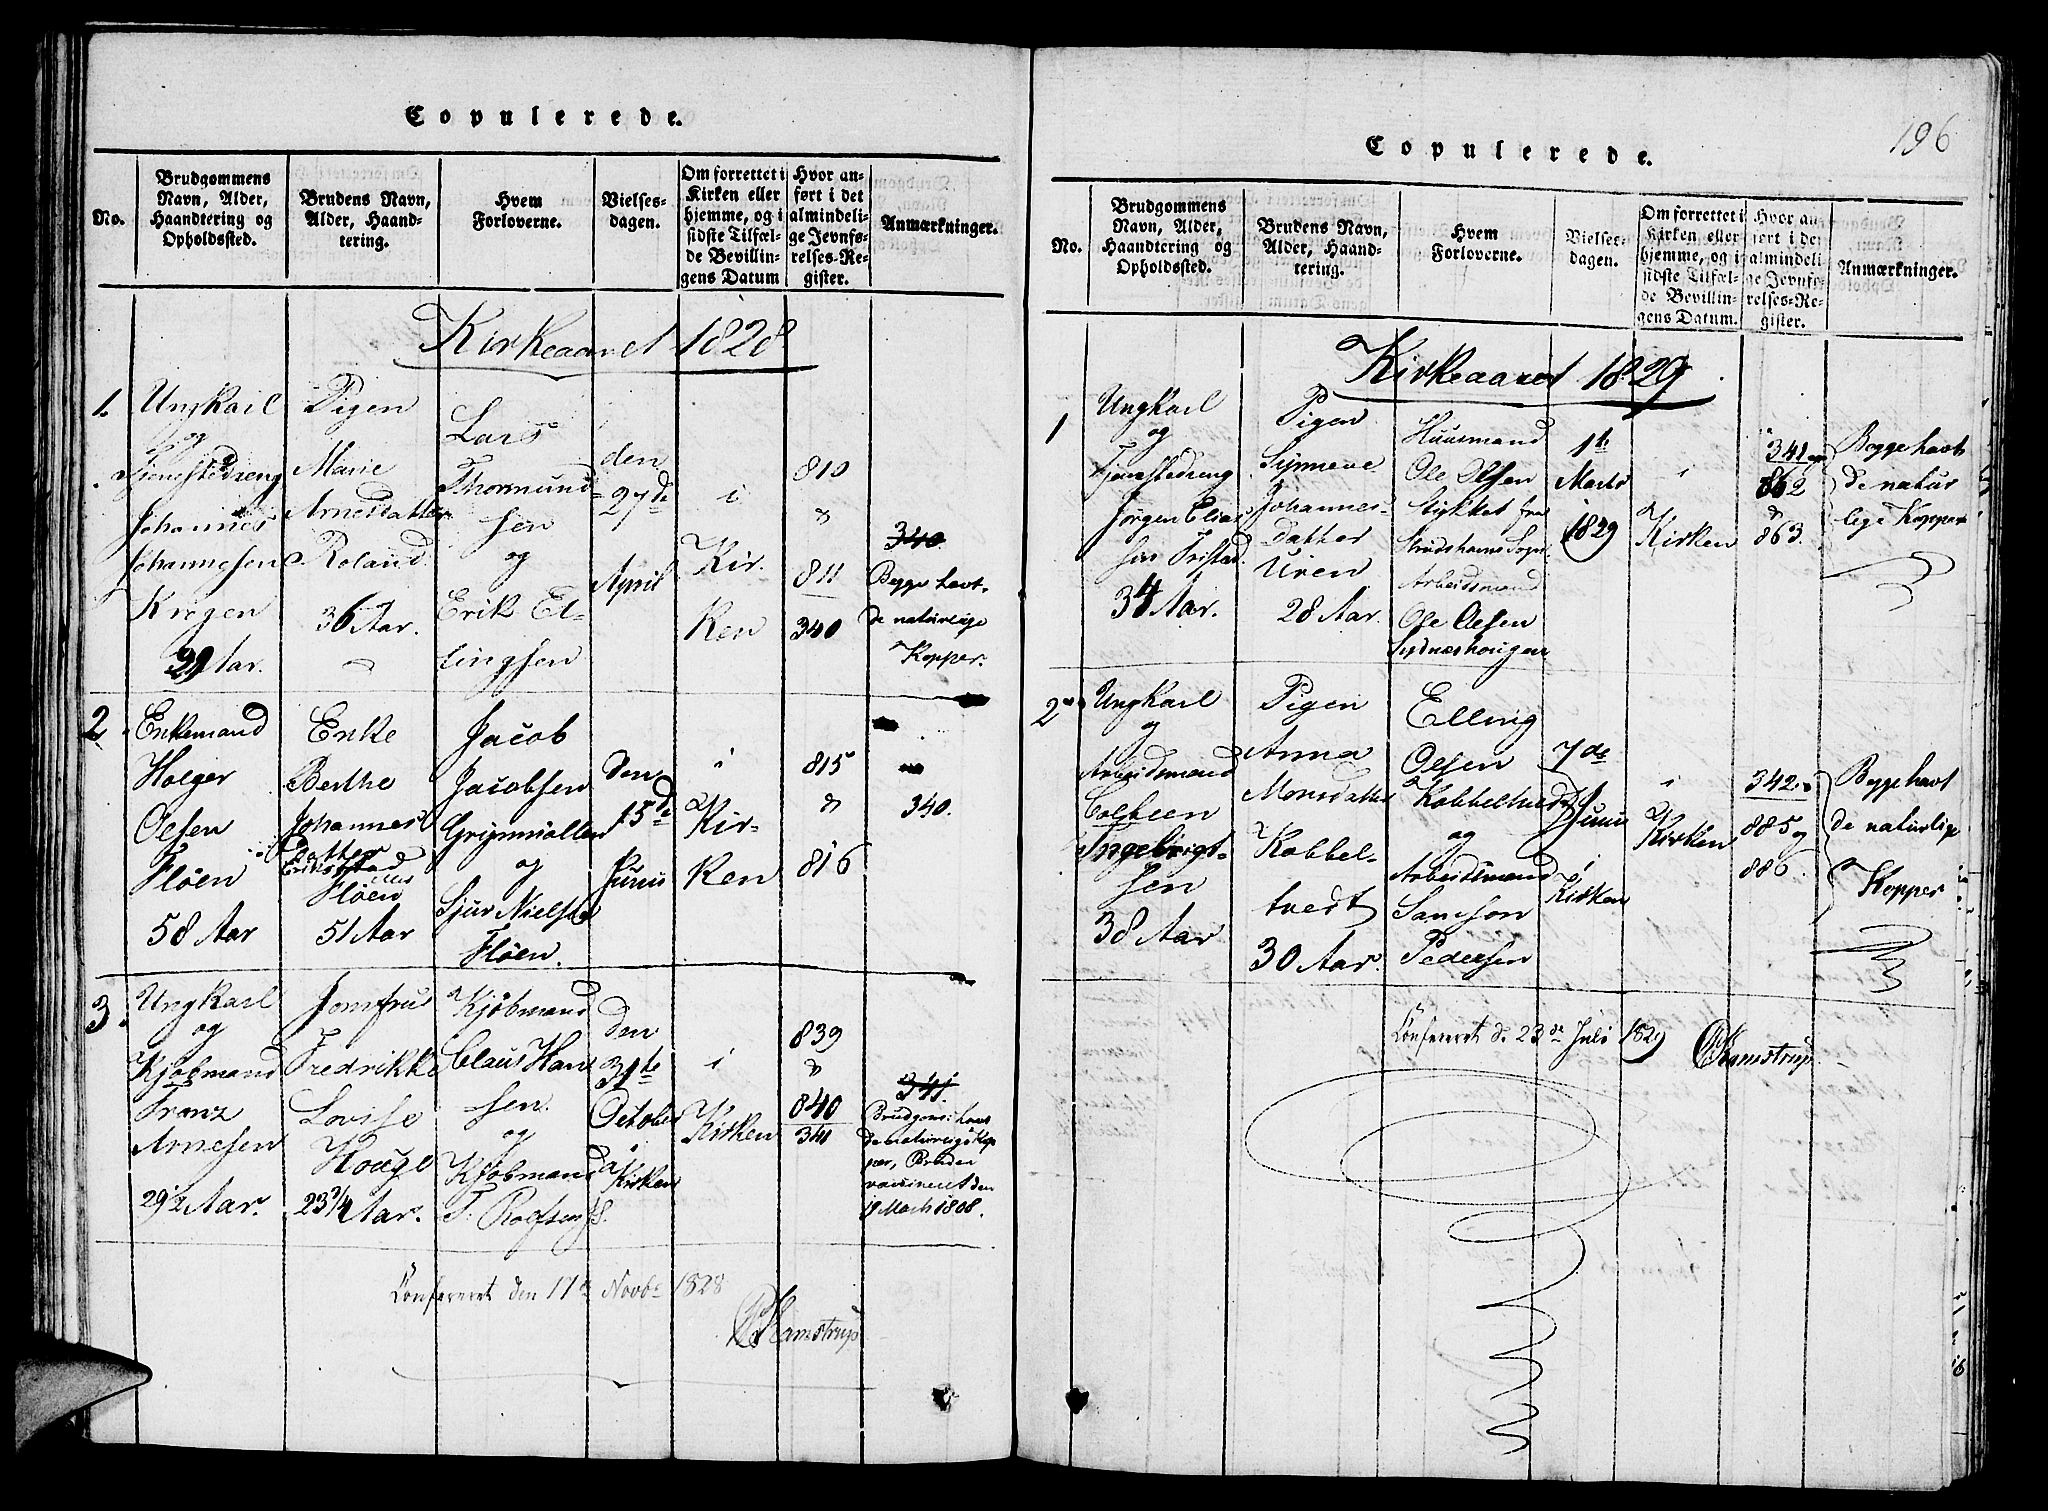 Copulerede.
No.
Brudgommens
Navn, Alder,
Haandtering og
Opholdssted.
Brudens Navn,
Alder, Haand-
tering.
Hvem
Forloverne.
Vielses-
dagen.
Om forrettet i
Kirken eller
hjemme, og i
sidste Tilfæl-
de Bevillin-
gens Datum
Hvor an-
ført i det
almindeli-
ge Jevnfø-
relses-Re-
gister.
Anmærkninger.
Kirkeaaret 1828
1.
Ungkarl
og
Tjenestedreng
Johannes
Johannesen
Krogen
29 Aar.
Pigen
Marie
Arnesdatter
Roland
36 Aar.
Lars
Thormund-
sen
og
Erik El-
lingsen
den
27de
April
i
Kir-
ken
810
&
811
340
340
Begge havt-
de naturlige
Kopper.
2
Enkemand
Holger
Olsen
Fløen
58 Aar
Enke
Berthe
Johannes
Datter
Fløen
51 Aar
Jacob
Jacobsen
Grijmmøllen
og
Sjur Nielsen
Fløen.
den
15de
Junii
i
Kir-
ken
815
&
816
340.
3.
Ungkarl
og
Kjøbmand
Franz
Arnesen
29½ Aar.
Jomfrue
Fredrikke
Lovise
Houge
23¾ Aar.
Kjøbmand
Claus Han
sen.
og
Kjøbmand
T. Rolfsen
den
31te
October
i
Kirken
i
Kirken
839
&
840
341
341.
Brudgom: havt
de naturlig Kop
per, Bruden
vaccineret den
19 March 1808.
Confereret den 17de Novbr 1828
Ramstrup
196
Copulerede.
No.
Brudgommens
Navn, Alder,
Haandtering og
Opholdssted.
Brudens Navn,
Alder, Haand-
tering.
Hvem
Forloverne.
Vielses-
dagen.
Om forrettet i
Kirken eller
hjemme, og i
sidste Tilfæl-
de Bevillin-
gens Datum.
Hvor an-
ført i det
almindeli-
ge Jevnfø-
relses-Re-
gister.
Anmærkninger.
Kirkeaaret 1829
1
Ungkarl
og
Tjenestedreng
Jørgen Elias
sen
34 Aar.
Pigen
Synneve
Johannes-
datter
Uren
28 Aar.
Huusmand
Ole Olsen
Lykket fra
Strudshavns Sogn
Arbeidsmand
Ole Olsen
Sydneshougen
1te
Marts
1829
i
Kirken
341
862
&
863.
Begge havt
de natur
lige Kopper
2
Ungkarl
og
Arbeidsmand
Ingebrigt-
sen
38 Aar
Pigen
Anna
Monsdatter
Kobbel-
tvedt
30 Aar.
Elling
Olsen
Kobbeltvedt
og
Arbeidsmand
Samson
Pedersen
7de
Junii
i
Kirken
i
Kirken
342.
885 og
886.
Begge havt
de naturlige
Kopper
Confereret d. 23de Juli 1829
Ramstrup.